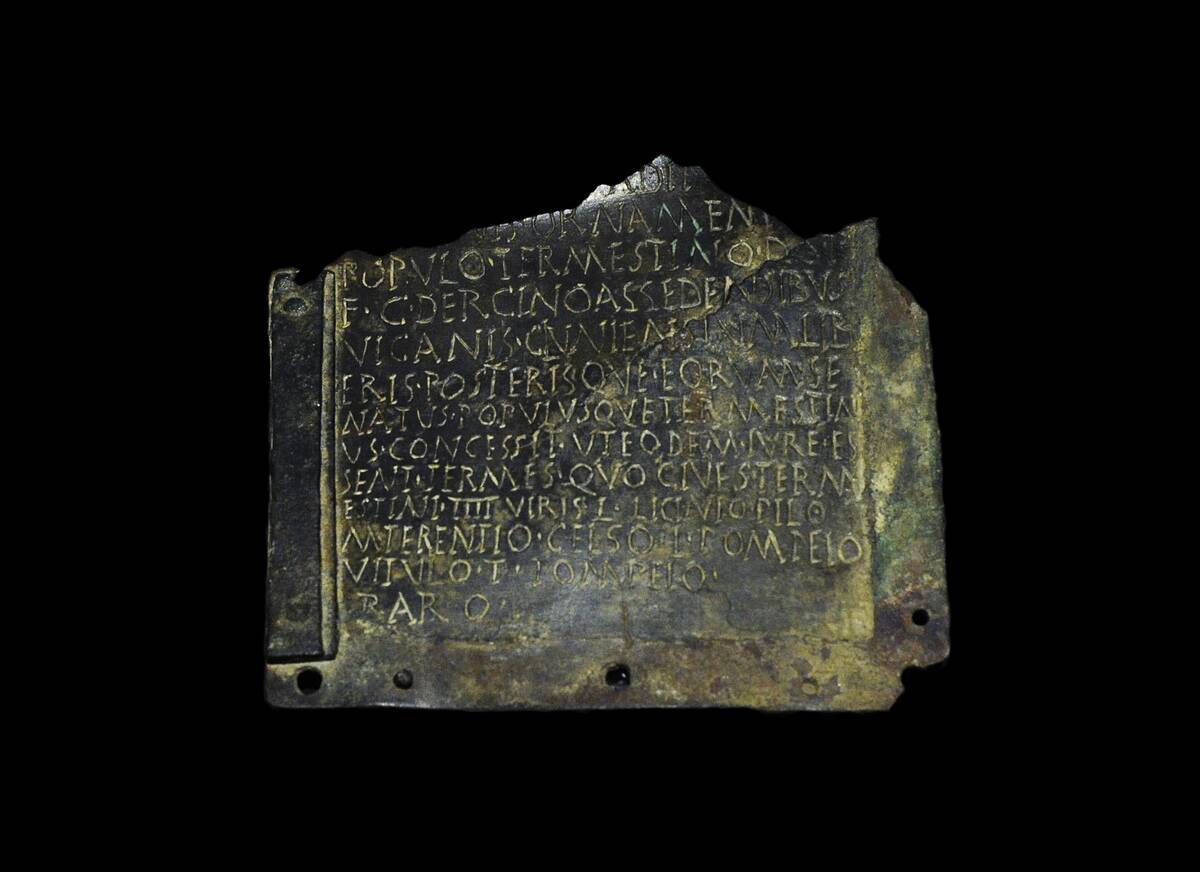 ORNAMEN
POPVLO·TERMESTINO·D
F·C·DERCINOASSEDENSIBVS
VICANIS·CLVNIENSIVM·LIB
ERIS·POSTERISQVE·EORVM·SE
NATVS·POPVLVSQVE·TERMESTIN
VS·CONCESSIT·VTEODEM·IVRE·ES
SENT·TERMES·QVO·CIVES·TERM
ESTINI·IIII·VIRIS·L·LICINIO·PILO
M·TERENTIO·CELSO·L·POMPEIO
VITVLO·T·POMPEIO·
RARO·